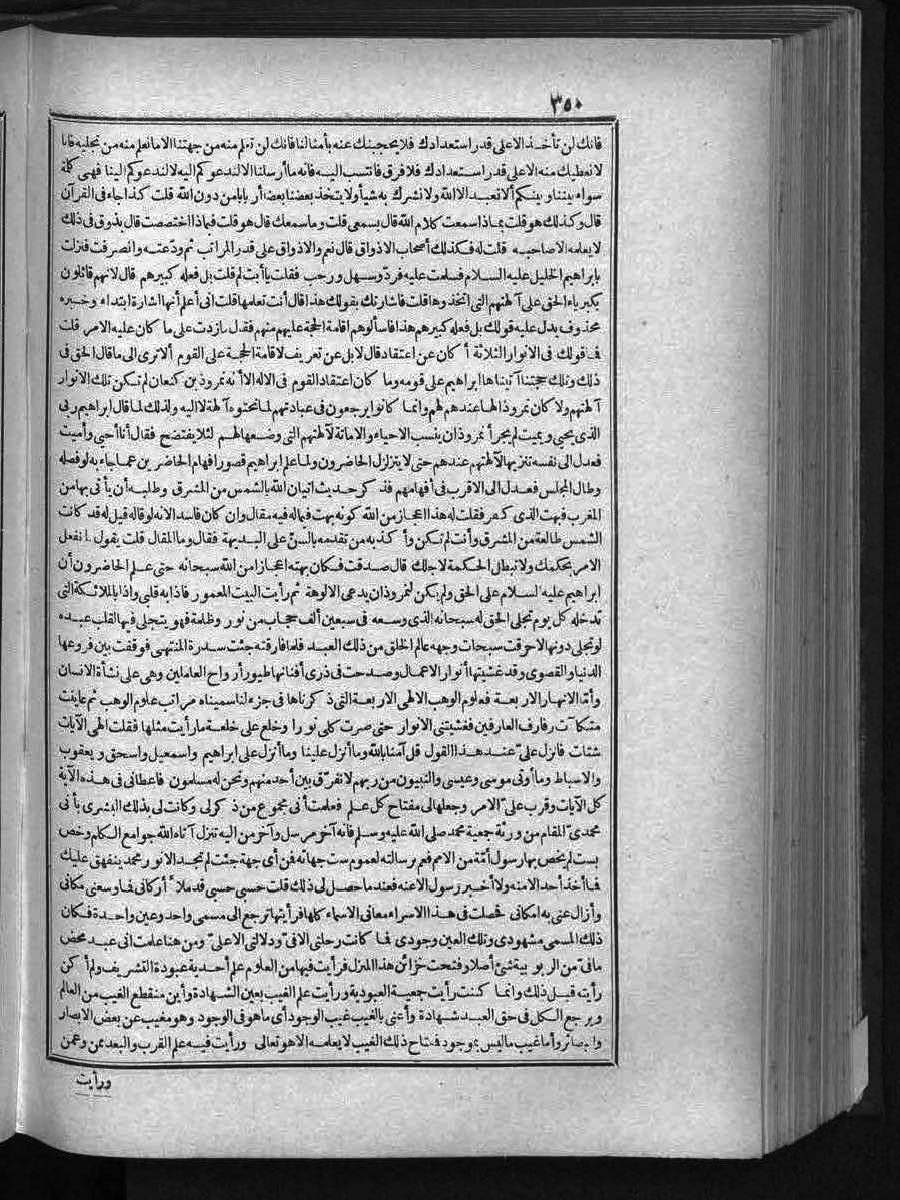 ٣٥٠
فانك لن تأخذ الاعلى قدر استعدادك فلا يحجبنك عنه بأمثالنا فانك لن تعلم منه من جهتنا الا ما نعلم منه من تجليه فانا
لا نعطيك منه الاعلى قدر استعدادك فلا فرق فانتسب اليه فانه ما أرسلنا الا لندعوكم اليه لا لندعوكم الينا فهى كلمة
سواء بيننا و بينكم ألا نعبد الا الله ولا نشرك به شيأ ولا يتخذ بعضنا بعضا أربابا من دون الله قلت كذا جاء فى القرآن
قال وكذلك هو قلت بماذا سمعت كلام الله قال بسمعى قلت وما سمعك قال هو قلت فبماذا اختصصت قال بذوق فى ذلك
لا يعلمه الا صاحبه قلت له فكذلك أصحاب الاذواق قال نعم والاذواق على قدر المراتب ثم ودّعته وانصرفت فنزلت
بابراهيم الخليل عليه السلام فسلمت عليه فردّ وسهل ورحب فقلت يا أبت لم قلت بل فعله كبيرهم قال لانهم قائلون
بكبرياء الحق على آلهتهم التى اتخذوها قلت فاشارتك بقولك هذا قال أنت تعلمها قلت انى أعلم أنها اشارة ابتداء وخبره
محذوف يدل عليه قولك بل فعله كبيرهم هذا فاسألوهم اقامة الحجة عليهم منهم فقال ما زدت على ما كان عليه الامر قلت
فما قولك فى الانوار الثلاثة أ كان عن اعتقاد قال لا بل عن تعريف لاقامة الحجة على القوم ألا ترى الى ما قال الحق فى
ذلك وتلك حجتنا آتيناها ابراهيم على قومه وما كان اعتقاد القوم فى الاله الا أنه نمروذ بن كنعان لم تكن تلك الانوار
آلهتهم ولا كان نمروذ الها عندهم لهم وانما كانوا يرجعون فى عبادتهم لما نحتوه آلهة لا اليه ولذلك لما قال ابراهيم ربى
الذى يحيى ويميت لم يجرأ نمروذ ان ينسب الاحياء والاماتة لآلهتهم التى وضعها لهم لئلا يفتضح فقال أنا أحيى وأميت
فعدل الى نفسه تنزيها لآلهتهم عندهم حتى لا يتزلزل الحاضرون ولما علم ابراهيم قصور افهام الحاضرين عما جاء به لو فصله
وطال المجلس فعدل الى الاقرب فى أفهامهم فذكر حديث اتيان الله بالشمس من المشرق وطلبه أن يأتى بها من
المغرب فبهت الذى كفر فقلت له هذا اعجاز من الله كونه بهت فيما له فيه مقال وان كان فاسدا لانه لو قاله قيل له قد كانت
الشمس طالعة من المشرق وأنت لم تكن وأكذبه من تقدمه بالسنّ على البديهة فقال وما المقال قلت يقول ما نفعل
الامر بحكمك ولا نبطل الحكمة لاجلك قال صدقت فكان بهته اعجازا من الله سبحانه حتى علم الحاضرون أن
ابراهيم عليه السلام على الحق ولم يكن لنمروذ ان يدعى الالوهة ثم رأيت البيت المعمور فاذا به قلبى واذا بالملائكة التى
تدخله كل يوم تجلى الحق له سبحانه الذى وسعه فى سبعين ألف حجاب من نور وظلمة فهو يتجلى فيها لقلب عبده
لو تجلى دونها لاحرقت سبحات وجهه عالم الخلق من ذلك العبد فلما فارقته جئت سدرة المنتهى فوقفت بين فروعها
الدنيا والقصوى وقد غشيتها أنوار الاعمال وصدحت فى ذرى أفنانها طيور أرواح العاملين وهى على نشأة الانسان
وأمّا الانهار الاربعة فعلوم الوهب الالهى الاربعة التى ذكرناها فى جزء لنا سميناه مراتب علوم الوهب ثم عاينت
متكآت رفارف العارفين فغشيتنى الانوار حتى صرت كلى نورا وخلع علىّ خلعة ما رأيت مثلها فقلت الهى الآيات
شتات فانزل علىّ عند هذا القول قل آمنا بالله وما أنزل علينا وما أنزل على ابراهيم واسمعيل واسحق ويعقوب
والاسباط وما أوتى موسى وعيسى والنبيون من ربهم لا نفرّق بين أحد منهم ونحن له مسلمون فاعطانى فى هذه الآية
كل الآيات وقرب علىّ الامر وجعلها لى مفتاح كل علم فعلمت أنى مجموع من ذكر لى وكانت لى بذلك البشرى بأنى
محمدىّ المقام من ورثة جمعية محمد صلى الله عليه وسلم فانه آخر مرسل وآخر من اليه تنزل آتاه الله جوامع الكلم وخص
بست لم يخص بها رسول أمّة من الامم فعم برسالته لعموم ست جهاته فمن أى جهة جئت لم تجد الا نور محمد ينفهق عليك
فما أخذ أحد الا منه ولا أخبر رسول الا عنه فعند ما حصل لى ذلك قلت حسبى حسبى قد ملأ أركانى فما وسعنى مكانى
وأزال عنى به امكانى فحصلت فى هذا الاسراء معانى الاسماء كلها فرأيتها ترجع الى مسمى واحد وعين واحدة فكان
ذلك المسمى مشهودى وتلك العين وجودى فما كانت رحلتى الا فىّ ودلالتى الا علىّ ومن هنا علمت انى عبد محض
ما فىّ من الربوبية شئ أصلا وفتحت خزائن هذا المنزل فرأيت فيها من العلوم علم أحدية عبودة التشريف ولم أكن
رأيته قبل ذلك وانما كنت رأيت جمعية العبودية ورأيت علم الغيب بعين الشهادة وأين منقطع الغيب من العالم
ويرجع الكل فى حق العبد شهادة وأعنى بالغيب غيب الوجود أى ما هو فى الوجود وهو مغيب عن بعض الابصار
والبصائر وأما غيب ما ليس بموجود فمفتاح ذلك الغيب لا يعلمه الا هو تعالى ورأيت فيه علم القرب والبعد ممن وعمن
ورأيت